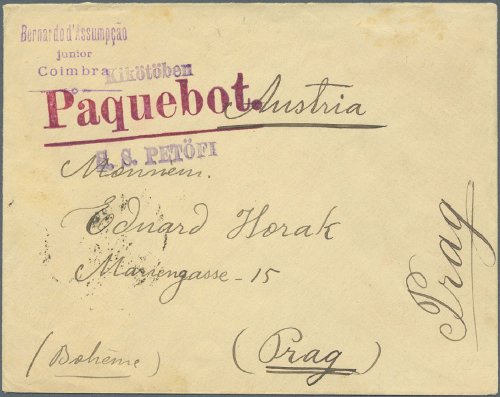 Bernardo d'Assumpção
junior
Coimbra
Kikötöben
Paquebot.
Austria
S. S. PETÖFI
Monnem.
Eduard Horak
Mariengasse - 15
(Prag)
(Bohème)
Prag